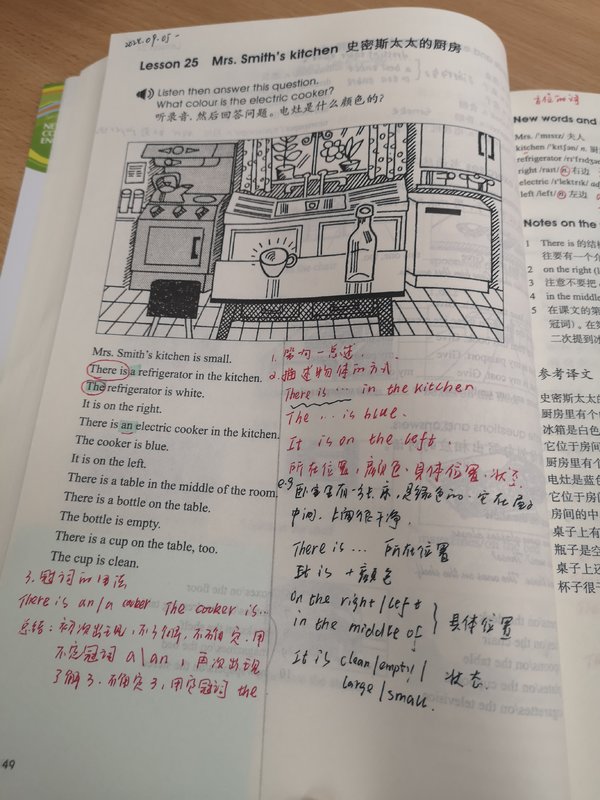 2024.09.05
Lesson 25 Mrs. Smith's kitchen 史密斯太太的厨房
Listen then answer this question.
What colour is the electric cooker?
听录音,然后回答问题。电灶是什么颜色的?
Mrs. Smith's kitchen is small.
There is a refrigerator in the kitchen.
The refrigerator is white.
It is on the right.
There is an electric cooker in the kitchen.
The cooker is blue.
It is on the left.
There is a table in the middle of the room.
There is a bottle on the table.
The bottle is empty.
There is a cup on the table, too.
The cup is clean.
1. 总述.
2. 描述物体的方式
There is ... in the kitchen
The ... is blue.
It is on the left.
所在位置,颜色,具体位置,状态
e.g 卧室里有一张床,是绿色的,它在屋子
中间,上面很干净.
There is... 所在位置
It is +颜色
on the right/left
in the middle of
具体位置
It is clean/empty/
large/small.
状态.
3. 冠词的用法
There is an/a cooker The cooker is...
总结:初次出现,不了解,不确定,用
不定冠词 a\an,再次出现
了解了,确定了,用定冠词 the
49
方位的词
New words and
Mrs. /ˈmɪsɪz/ 夫人
kitchen /ˈkɪtʃən/ n. 厨
refrigerator
right /raɪt/ n. 右边
electric /ɪˈlektrɪk/
left /left/ n. 左边
Notes on the
1 There is 的结
往要有一个
2 on the right (
3 注意不要把
4 in the middle
5 在课文的第
冠词)。在第
二次提到冰
参考译文
史密斯太太的
厨房里有个
冰箱是白色
它位于房间
厨房里有个
电灶是蓝色
它位于房间
房间的中
桌子上有
瓶子是空
桌子上还
杯子很干